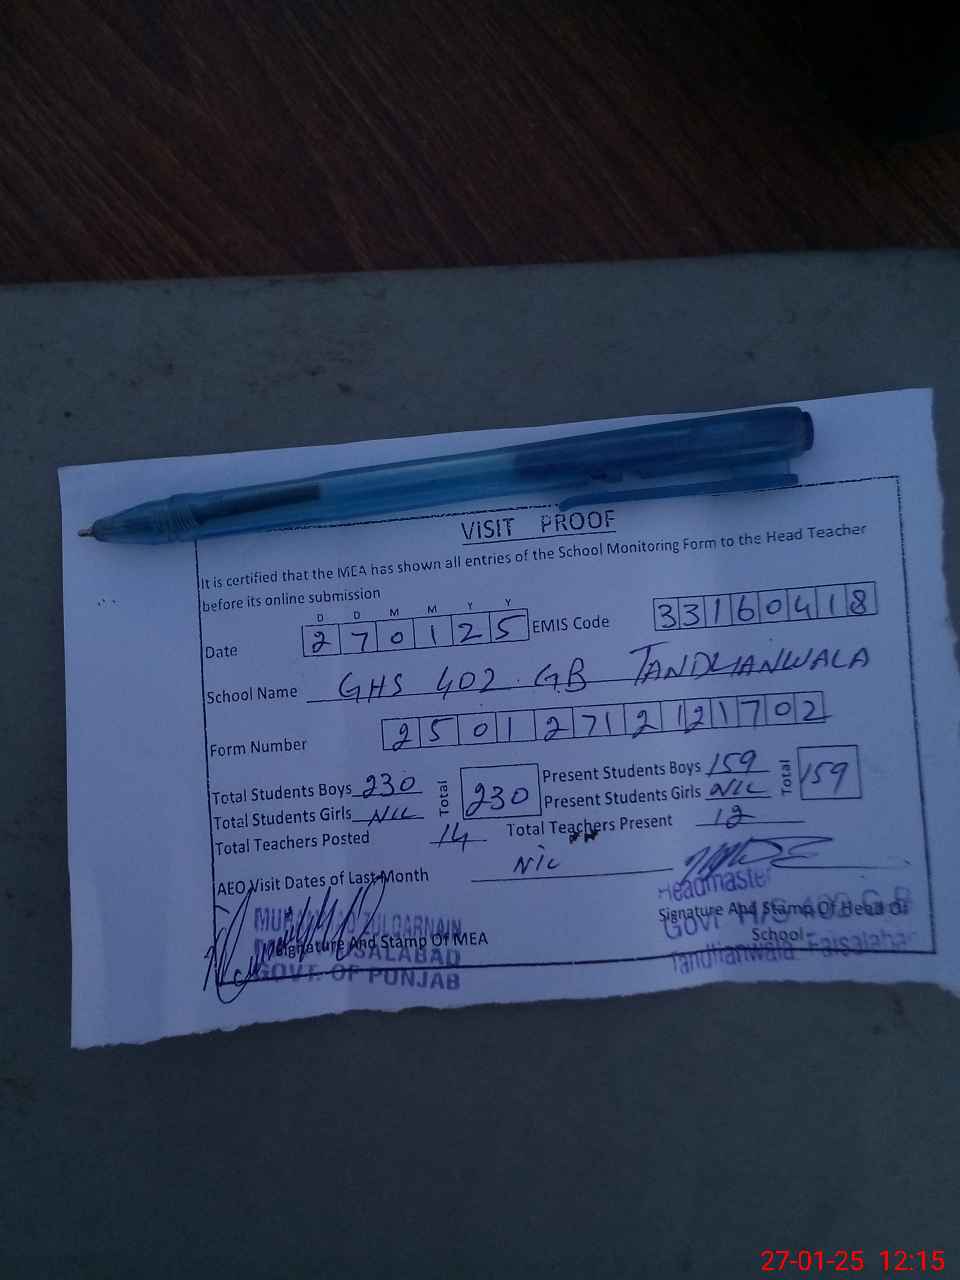 VISIT PROOF
It is certified that the MEA has shown all entries of the School Monitoring Form to the Head Teacher
before its online submission
D D M M Y Y
Date 2 7 0 1 2 5 EMIS Code 3 3 1 6 0 4 1 8
School Name GHS 402 GB TANDLIANWALA
Form Number 2 5 0 1 2 7 1 2 1 2 1 7 0 2
Total Students Boys 230 Total 230 Present Students Boys 159 Total 159
Total Students Girls NIL Present Students Girls NIL
Total Teachers Posted 14 Total Teachers Present 12
AEO Visit Dates of Last Month NIL
Headmaster
Signature And Stamp Of Head of
School
Tandlianwala Faisalabad
ZULQARNAIN
Signature And Stamp Of MEA
GOVT. OF PUNJAB
27-01-25 12:15